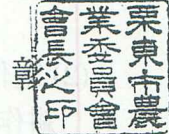 彰
栗東市農
業委員會
會長之印